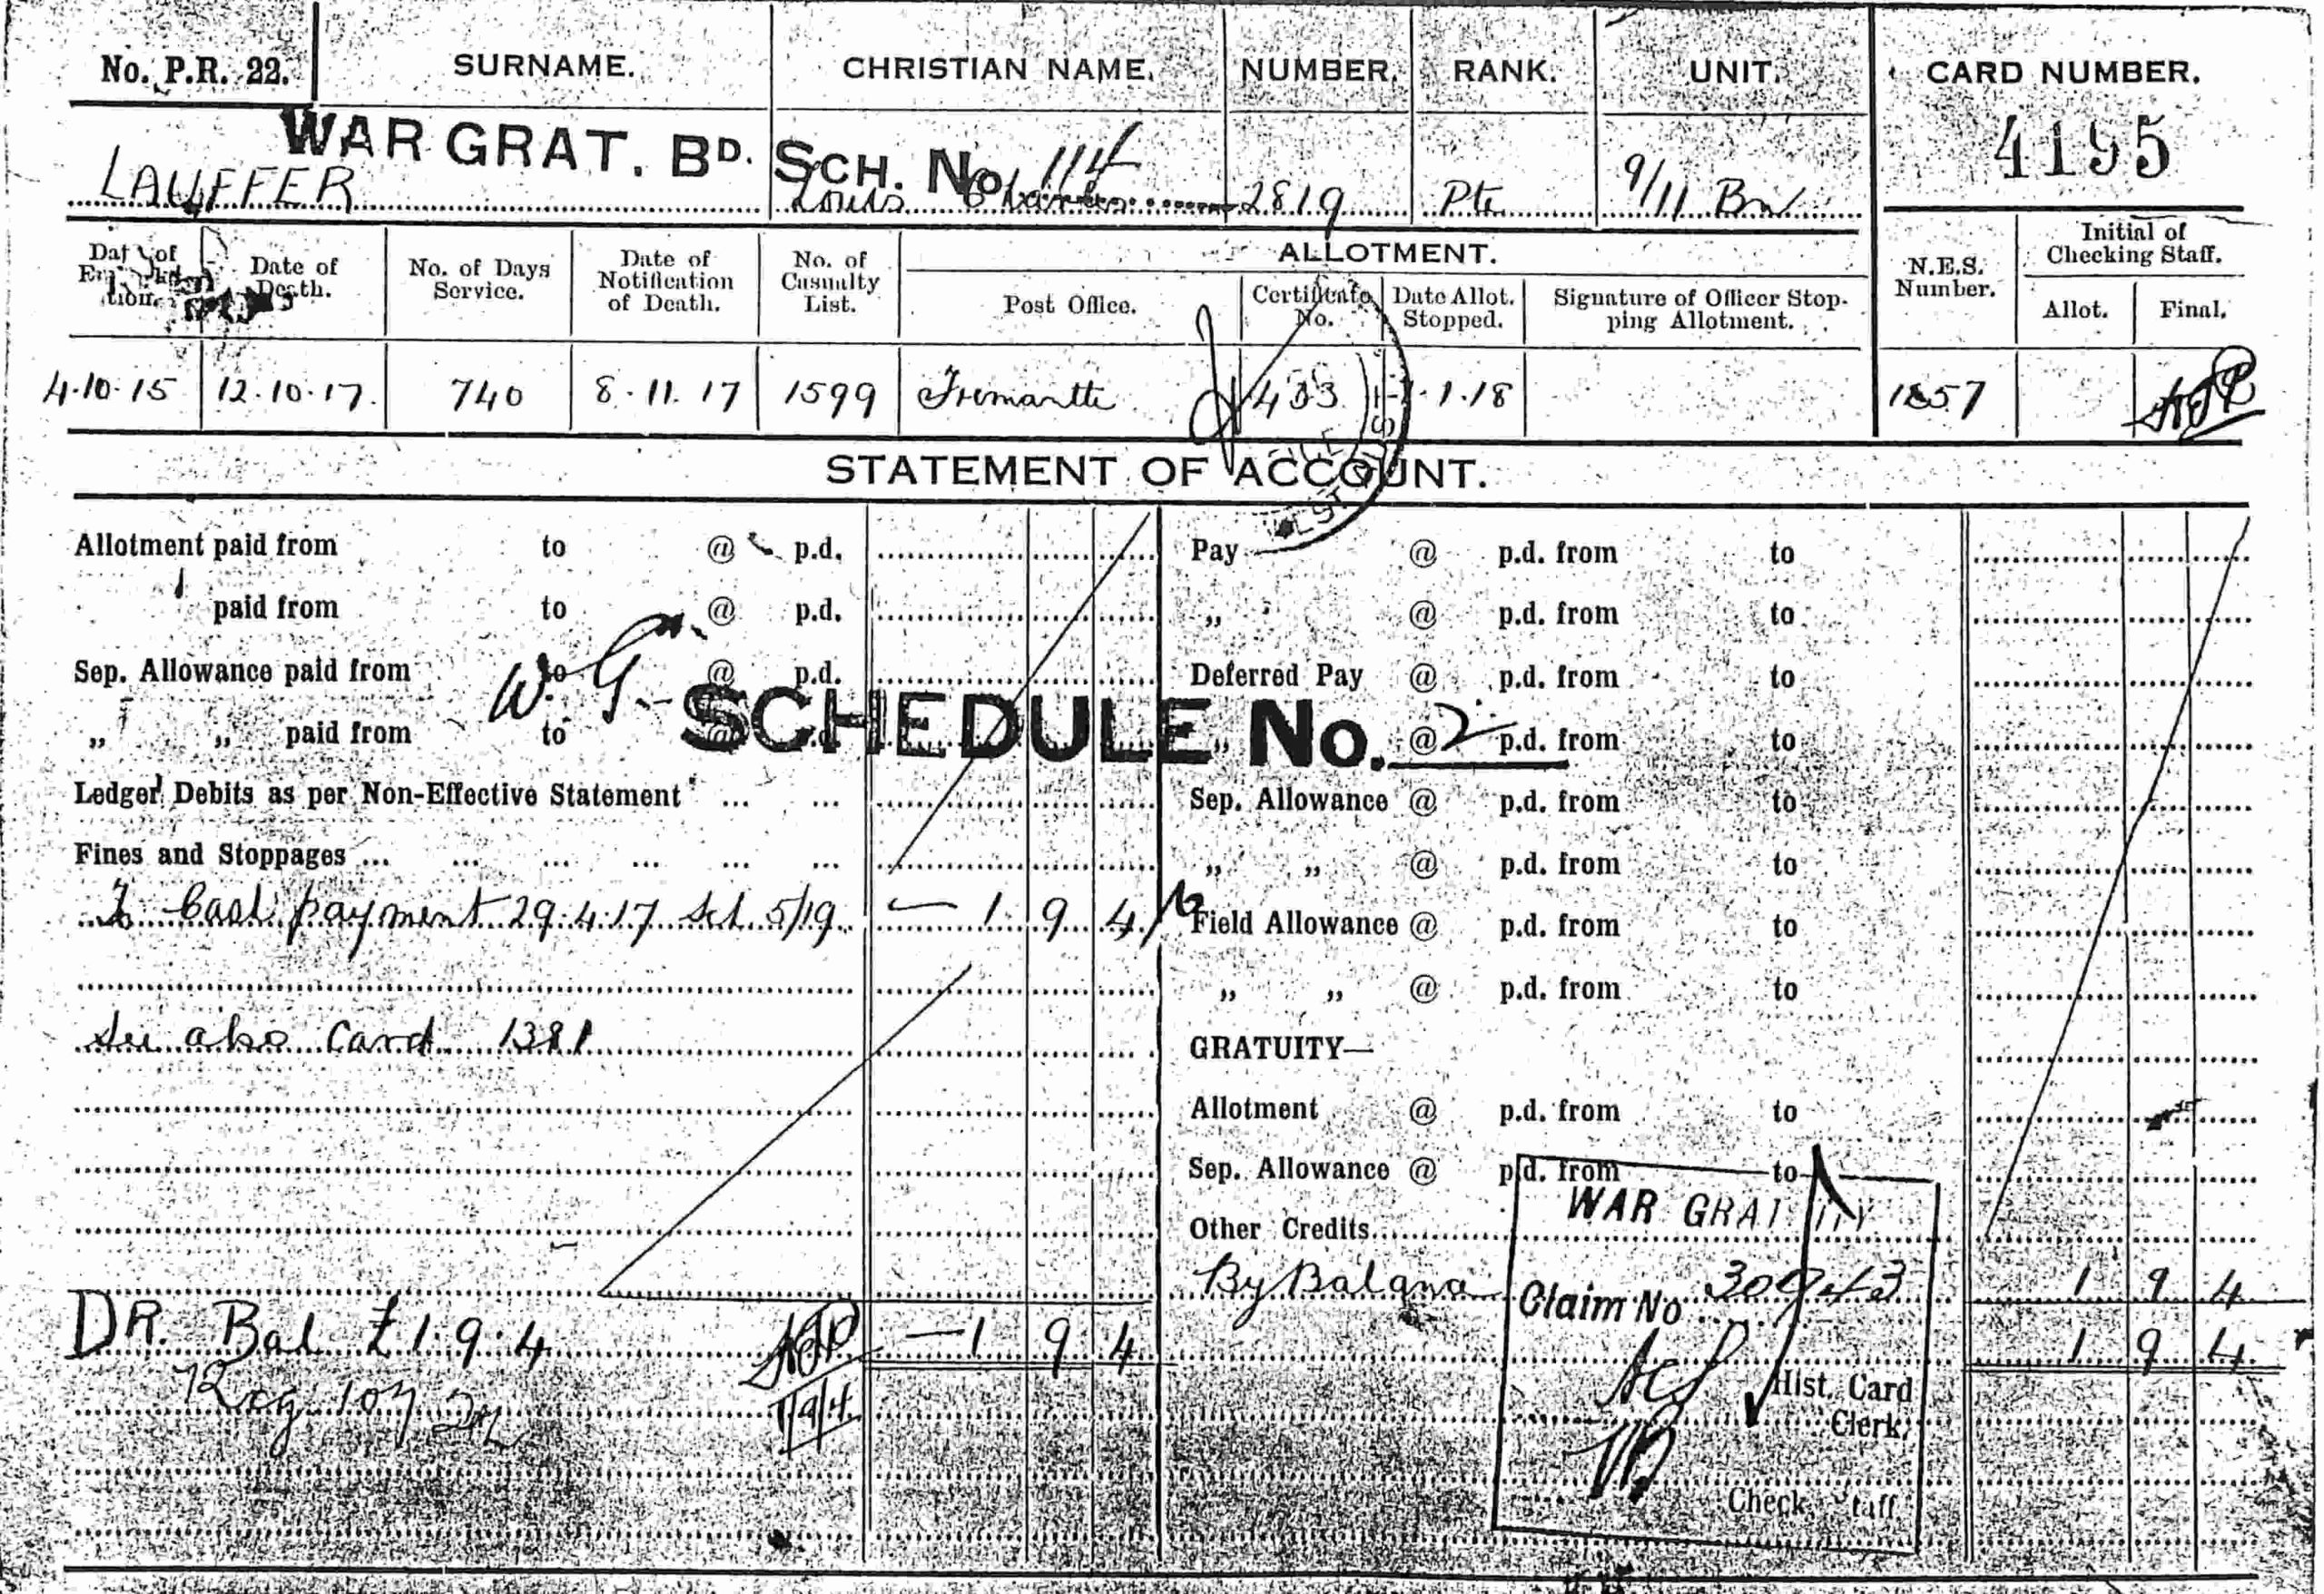 No. P.R. 22. SURNAME. CHRISTIAN NAME. NUMBER. RANK. UNIT. CARD NUMBER.
WAR GRAT. BD. SCH. No. 114
4195
LAUFFER Louis Charles 2819 Pte 9/11 Bn
Date of Death. No. of Days Service. Date of Notification of Death. No. of Casualty List. ALLOTMENT. N.E.S. Number. Initial of Checking Staff.
Post Office. Certificate No. Date Allot. Stopped. Signature of Officer Stopping Allotment. Allot. Final.
4.10.15 12.10.17. 740 8.11.17 1599 Fremantle 433 1.1.18 1257
STATEMENT OF ACCOUNT.
Allotment paid from to @ p.d. Pay @ p.d. from to
paid from to @ p.d. „ @ p.d. from to
Sep. Allowance paid from to @ p.d. Deferred Pay @ p.d. from to
W. G. SCHEDULE No. 2
„ „ paid from to @ p.d. „ @ p.d. from to
Ledger Debits as per Non-Effective Statement ... ... Sep. Allowance @ p.d. from to
Fines and Stoppages ... ... ... ... ... ... „ „ @ p.d. from to
To Cash payment 29.4.17 Sch. 5/19 — 1 9 4 Field Allowance @ p.d. from to
„ „ @ p.d. from to
See also Card 1381 GRATUITY—
Allotment @ p.d. from to
Sep. Allowance @ p.d. from to
WAR GRATUITY
Other Credits
By Balance 1 9 4
Claim No
DR. Bal £1.9.4 — 1 9 4 1 9 4
Hist. Card
Clerk.
Check Staff